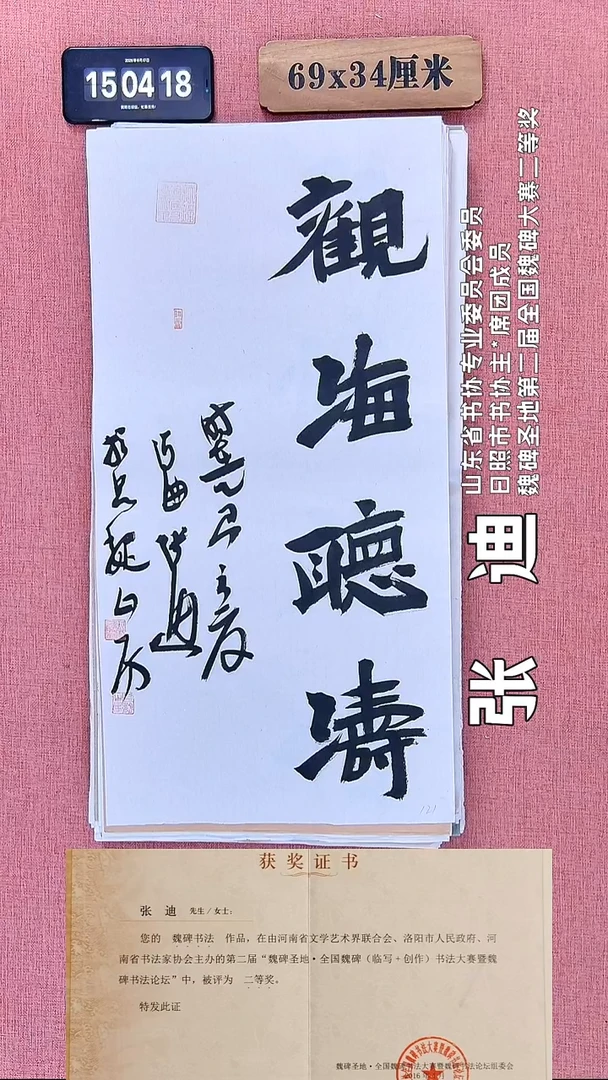 15 04 18
69x34厘米
觀海聽濤
山东省书协专业委员会委员
日照市书协主*席团成员
魏碑圣地第二届全国魏碑大赛二等奖
张 迪
获奖证书
张 迪 先生/女士:
您的 魏碑书法 作品，在由河南省文学艺术界联合会、洛阳市人民政府、河
南省书法家协会主办的第二届“魏碑圣地·全国魏碑（临写+创作）书法大赛暨魏
碑书法论坛”中，被评为 二等奖。
特发此证
魏碑圣地·全国魏碑书法大赛暨魏碑书法论坛组委会